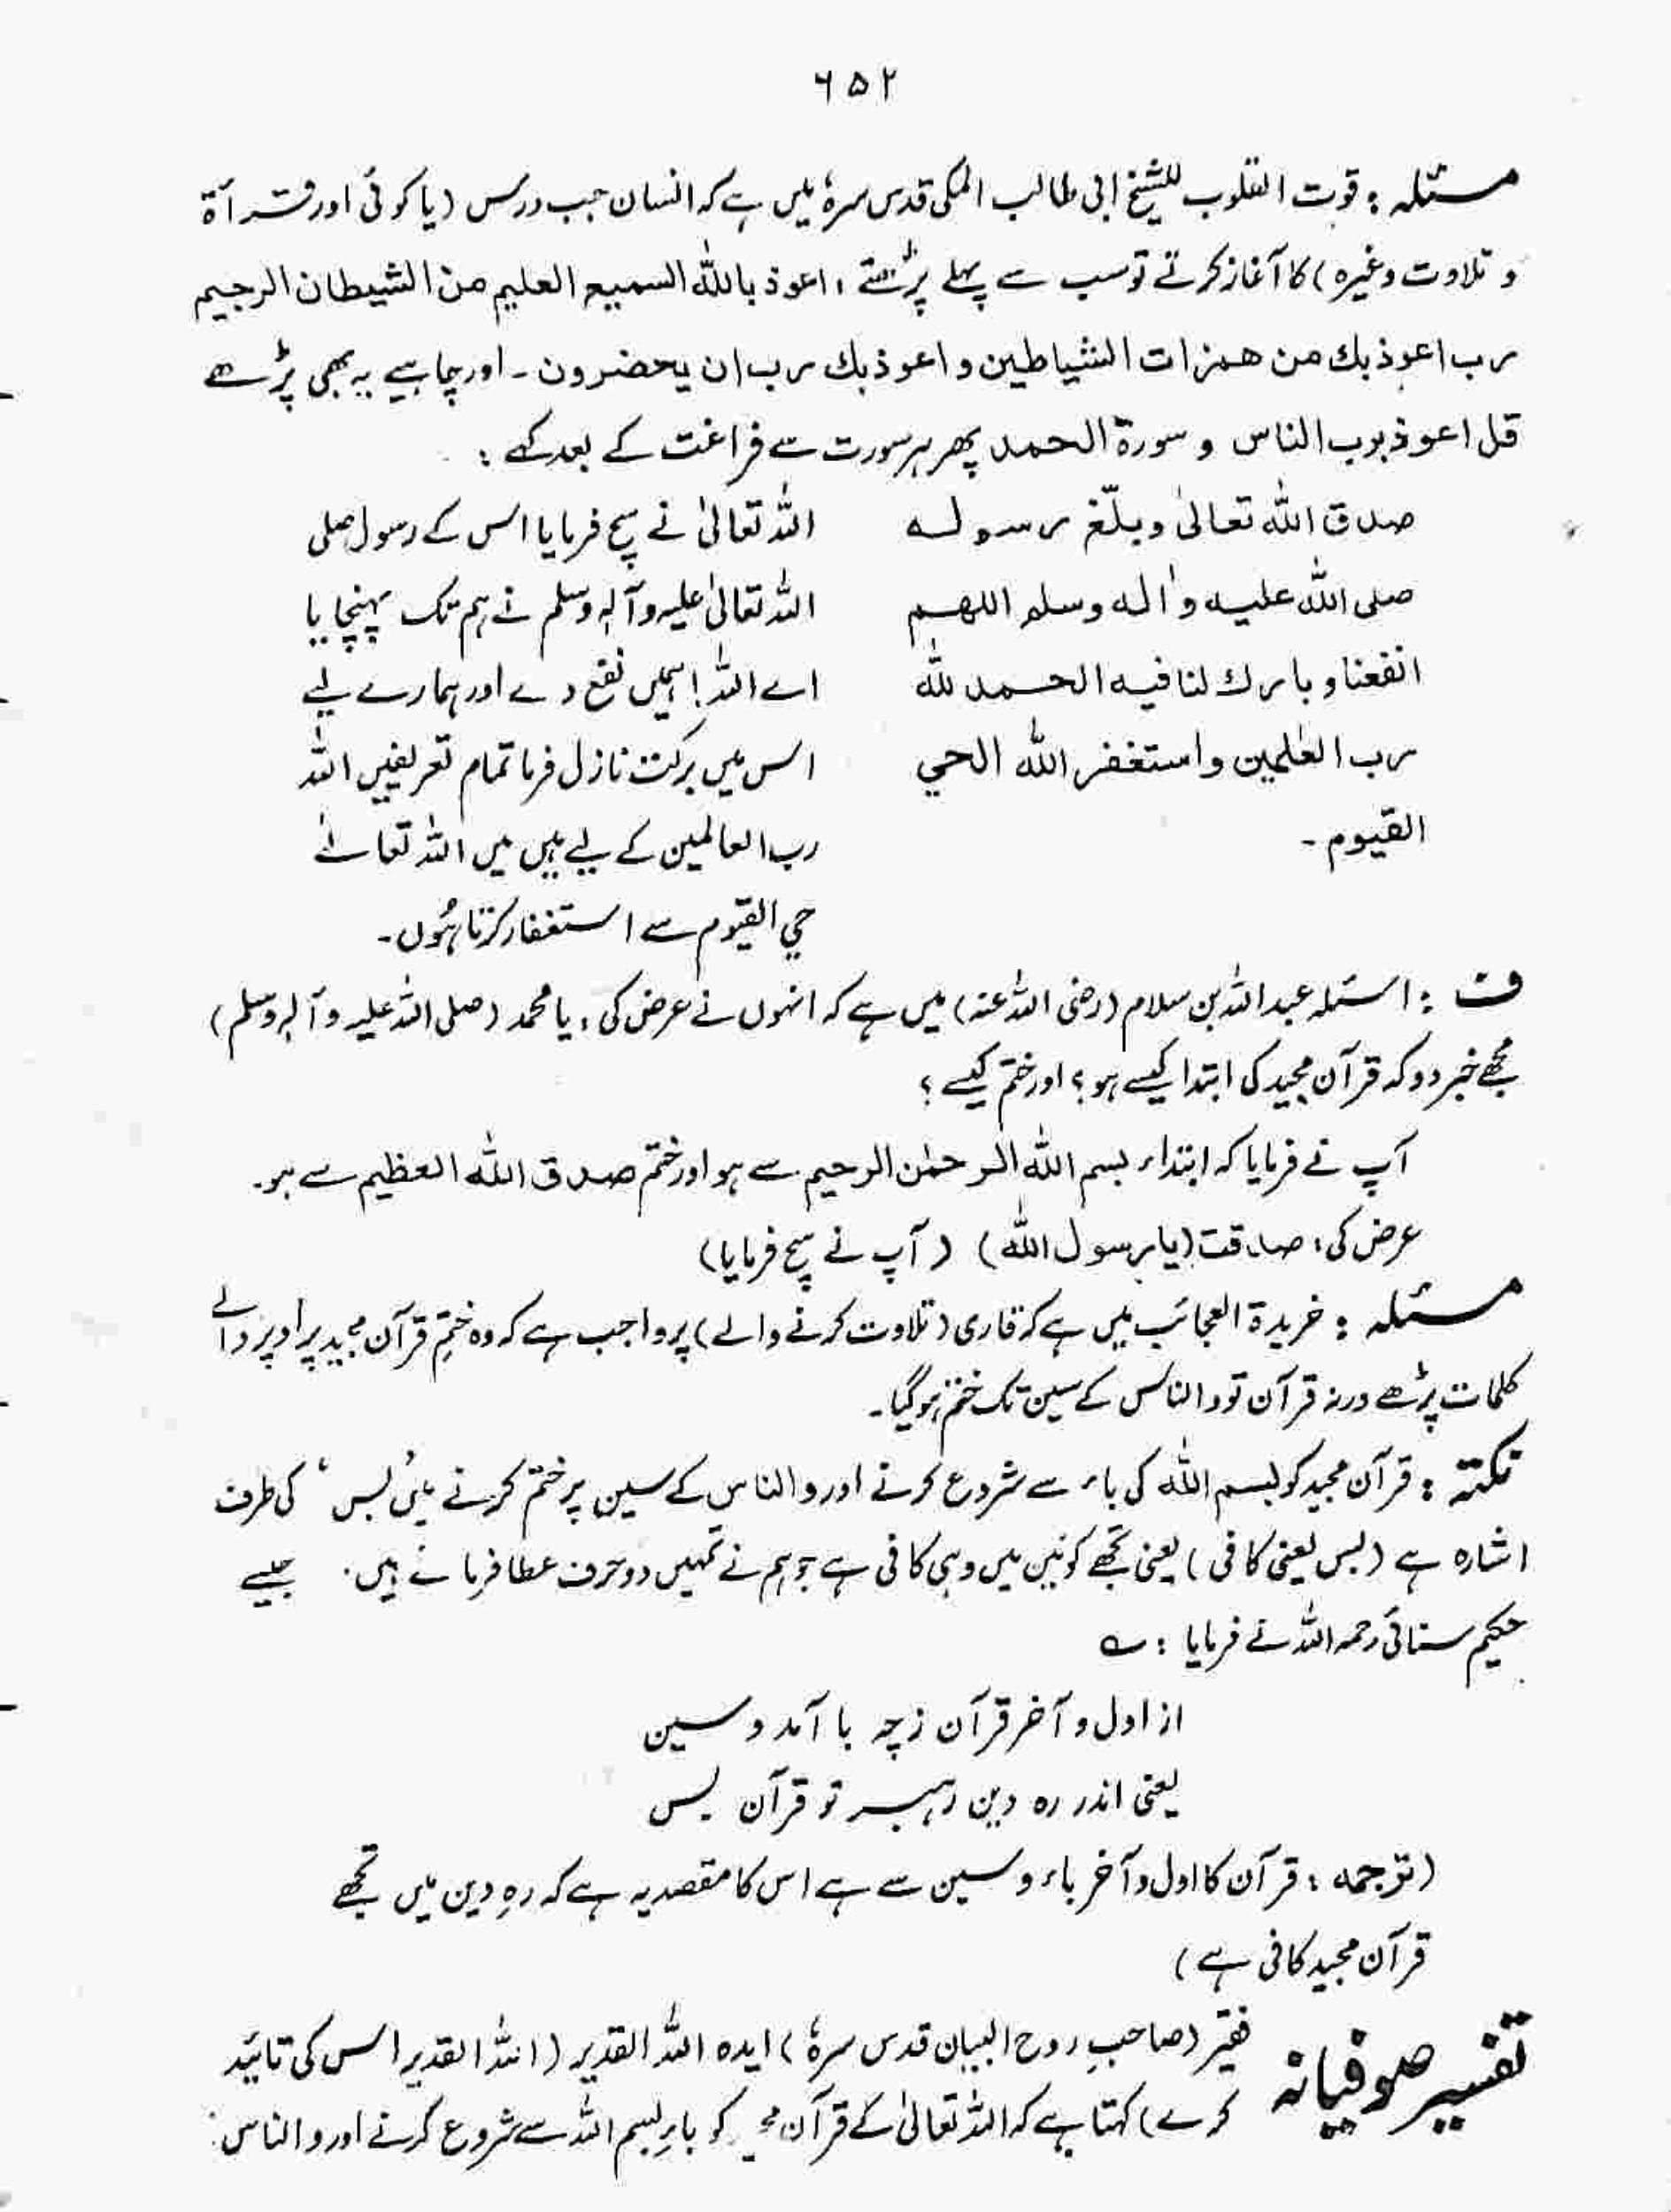 ۶۵۲
مسئلہ : قوت القلوب للشیخ ابی طالب المکی قدس سرہٗ میں ہے کہ انسان جب درس (یا کوئی اور قرآۃ
و تلاوت وغیرہ) کا آغاز کرتے تو سب سے پہلے پڑھتے ، اعوذ باللہ السمیع العلیم من الشیطان الرجیم
رب اعوذ بك من همزات الشیاطین و اعوذ بك رب ان یحضرون ۔ اور چاہیے یہ بھی پڑھے
قل اعوذ برب الناس و سورة الحمد پھر ہر سورت سے فراغت کے بعد کہے :
صدق اللہ تعالیٰ وبلّغ رسولہ
صلی اللہ علیہ واٰلہ وسلم اللهم
انفعنا و بارك لنا فیه الحمد للہ
رب العٰلمین و استغفر اللہ الحی
القیوم ۔
اللہ تعالیٰ نے سچ فرمایا اس کے رسول صلی
اللہ تعالیٰ علیہ وآلہٖ وسلم نے ہم تک پہنچایا
اے اللہ! ہمیں نفع دے اور ہمارے لیے
اس میں برکت نازل فرما تمام تعریفیں اللہ
رب العالمین کے لیے ہیں میں اللہ تعالےٰ
حی القیّوم سے استغفار کرتا ہُوں ۔
ف : اسئلہ عبداللہ بن سلام (رضی اللہ عنہ) میں ہے کہ انہوں نے عرض کی ، یا محمد (صلی اللہ علیہ وآلہٖ وسلم)
مجھے خبر دو کہ قرآن مجید کی ابتدا کیسے ہو ؟ اور ختم کیسے ؟
آپ نے فرمایا کہ ابتداء بسم اللہ الرحمٰن الرحیم سے ہو اور ختم صدق اللہ العظیم سے ہو ۔
عرض کی ، صدقت (یا رسول اللہ) (آپ نے سچ فرمایا)
مسئلہ : خریدۃ العجائب میں ہے کہ قاری (تلاوت کرنے والے) پر واجب ہے کہ وہ ختمِ قرآن مجید پر اوپر والے
کلمات پڑھے ورنہ قرآن تو والناس کے سین تک ختم ہو گیا ۔
نکتہ : قرآن مجید کو بسم اللہ کی باء سے شروع کرنے اور والناس کے سین پر ختم کرنے میں ’بس‘ کی طرف
اشارہ ہے (بس یعنی کافی) یعنی تجھے کونین میں وہی کافی ہے جو ہم نے تمہیں دو حرف عطا فرمائے ہیں ۔ جیسے
حکیم سنائی رحمہ اللہ نے فرمایا : ؎
از اول و آخر قرآن زچہ با آمد و سین
یعنی اندر رہ دین رہبر تو قرآن بس
(ترجمہ : قرآن کا اول و آخر باء و سین سے ہے اس کا مقصد یہ ہے کہ رہِ دین میں تجھے
قرآن مجید کافی ہے)
تفسیر صوفیانہ فقیر (صاحبِ روح البیان قدس سرہٗ) ایدہ اللہ القدیر (اللہ القدیر اس کی تائید
کرے) کہتا ہے کہ اللہ تعالیٰ کے قرآن کو باءِ بسم اللہ سے شروع کرنے اور والناس